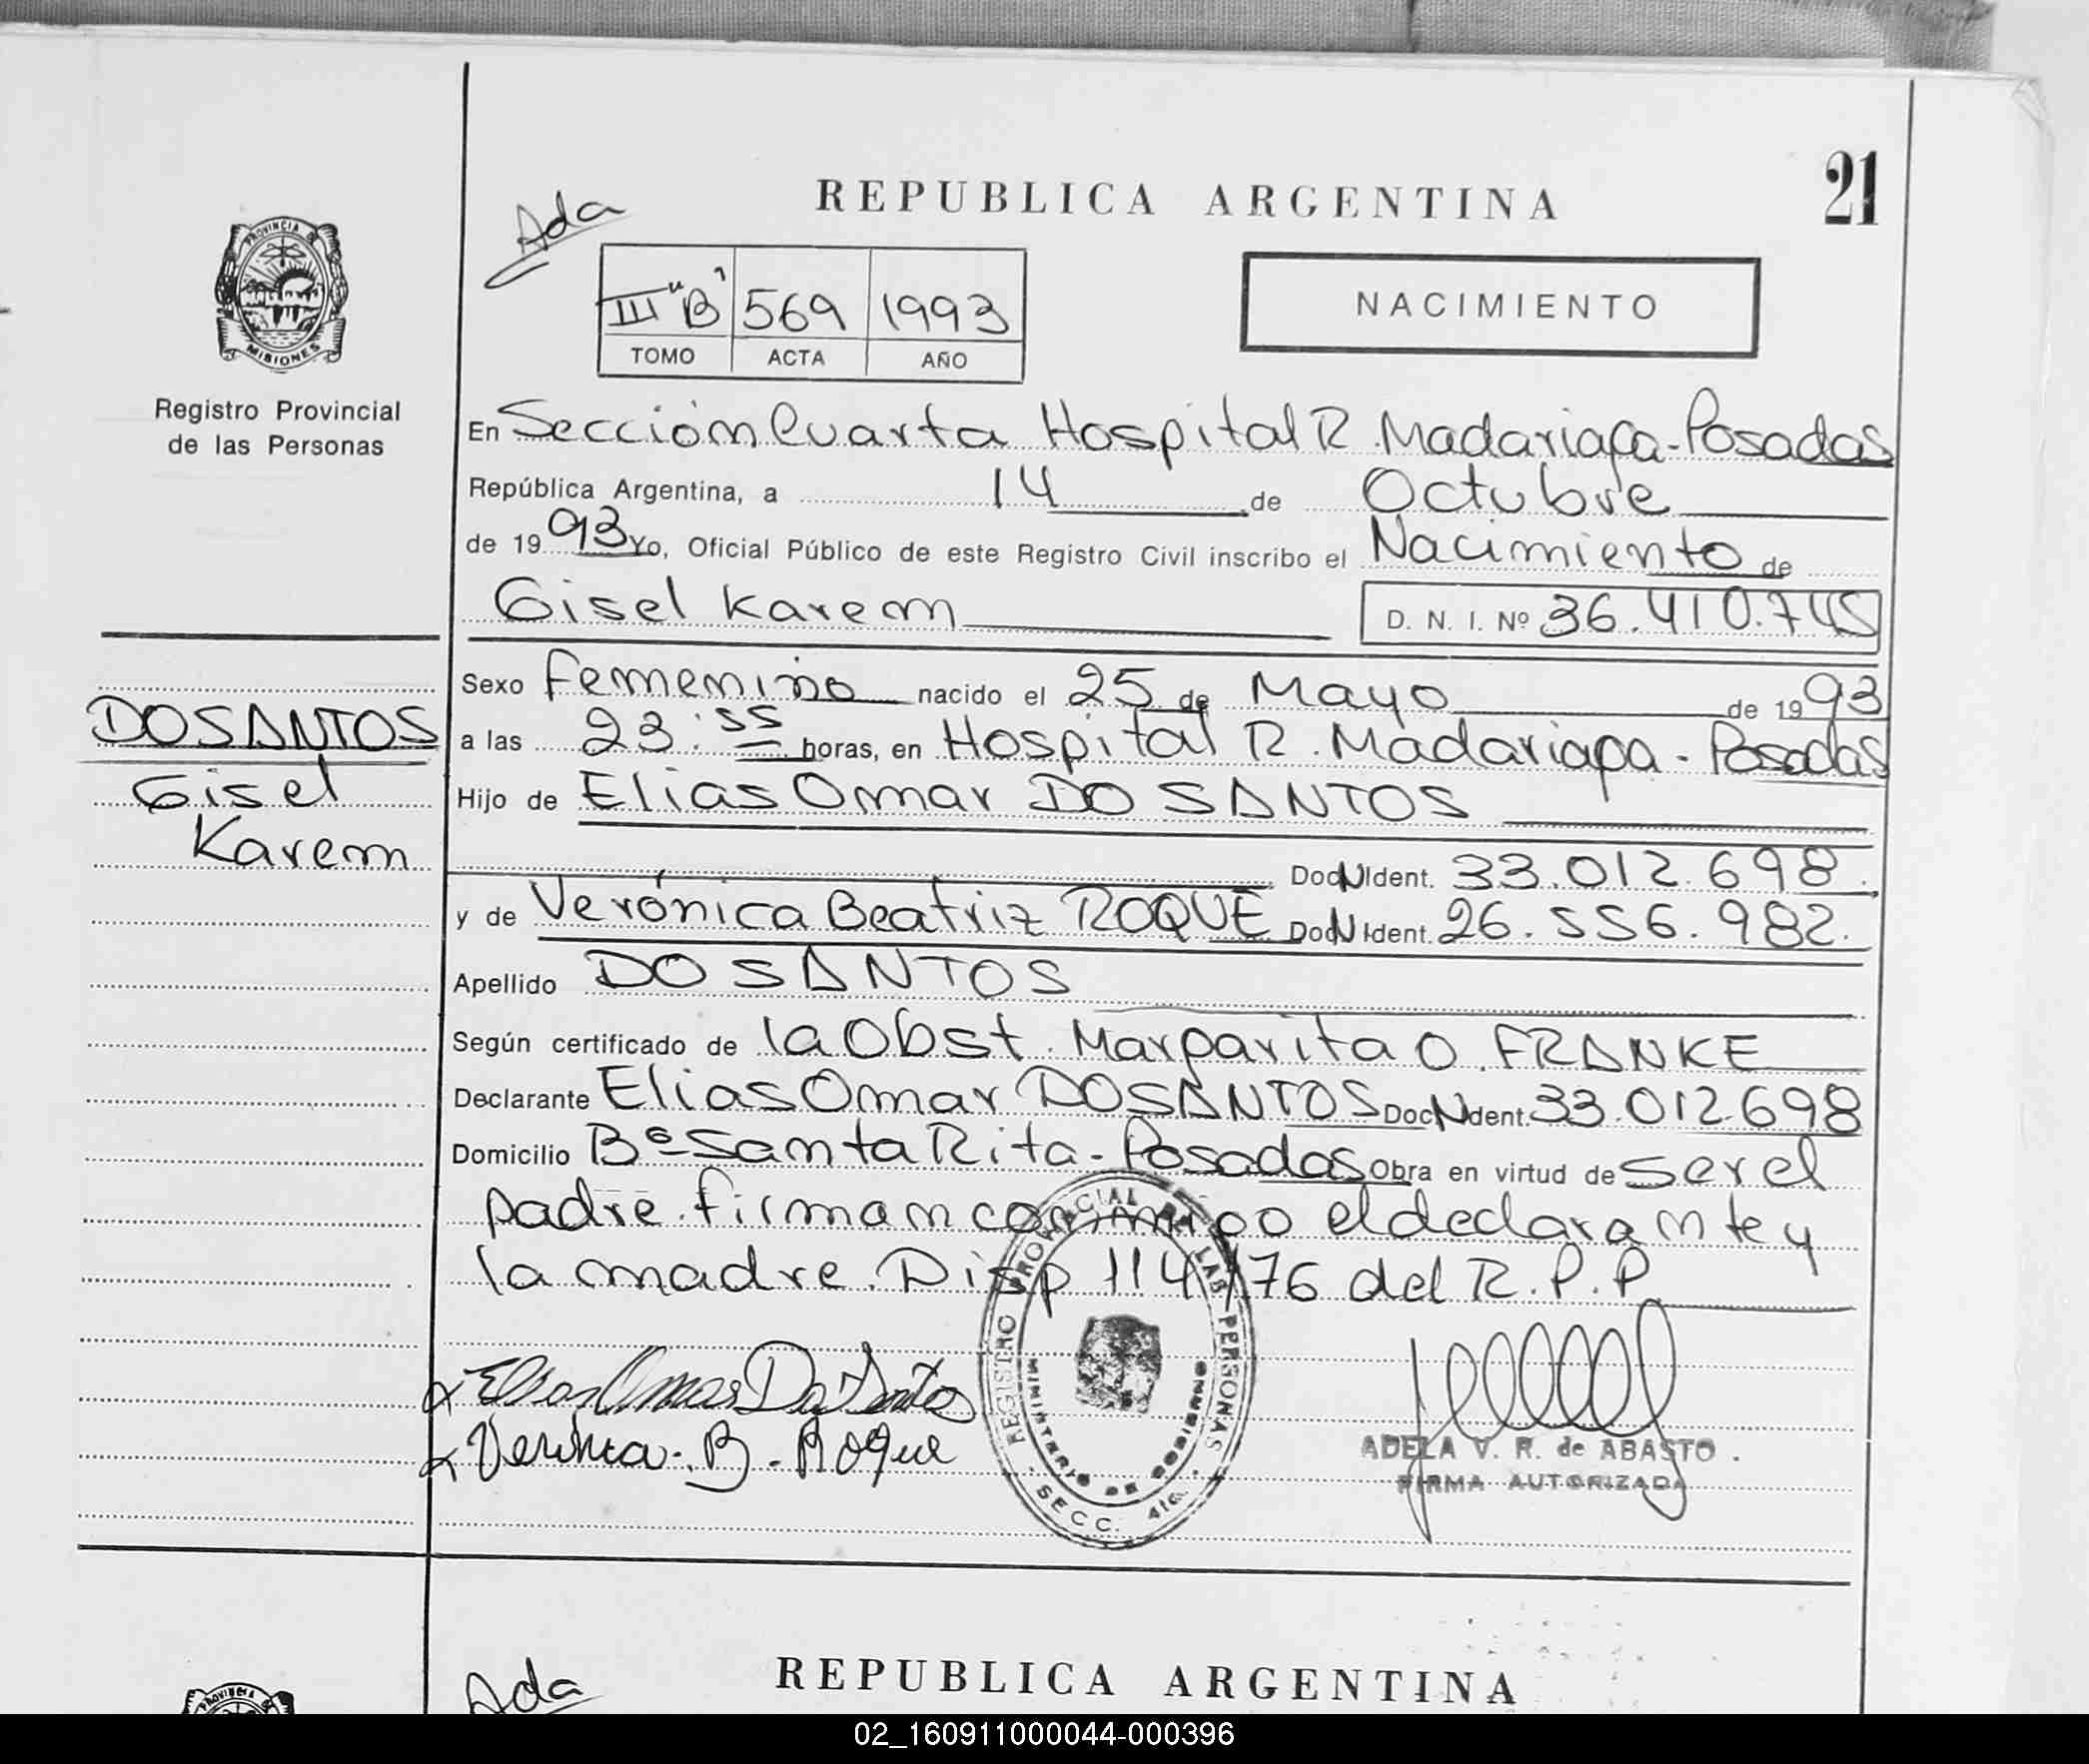 REPUBLICA ARGENTINA
21
Ada
PROVINCIA DE
MISIONES
Registro Provincial
de las Personas
III "B" 569 1993
TOMO ACTA AÑO
NACIMIENTO
En Sección Cuarta Hospital R. Madariaga - Posadas
República Argentina, a 14 de Octubre
de 1993 Yo, Oficial Público de este Registro Civil inscribo el Nacimiento de
Gisel Karem D. N. I. Nº 36.410.745
DO SANTOS
Gisel
Karem
Sexo Femenino nacido el 25 de Mayo de 1993
a las 23:55 horas, en Hospital R. Madariaga - Posadas
Hijo de Elias Omar DO SANTOS
Doc N Ident. 33.012.698.
y de Verónica Beatriz ROQUE Doc N Ident. 26.556.982.
Apellido DO SANTOS
Según certificado de la Obst. Margarita O. FRANKE
Declarante Elias Omar DO SANTOS Doc N Ident. 33.012.698
Domicilio Bº Santa Rita - Posadas Obra en virtud de ser el
padre. firman conmigo el declarante y
la madre. Disp 114/76 del R. P. P.
Elias Omar Do Santos
Verónica B. Roque
REGISTRO PROVINCIAL DE LAS PERSONAS
MINISTERIO DE GOBIERNO
SECC. 4ta.
ADELA V. R. de ABASTO.
FIRMA AUTORIZADA
Ada
REPUBLICA ARGENTINA
PROVINCIA DE
02_160911000044-000396